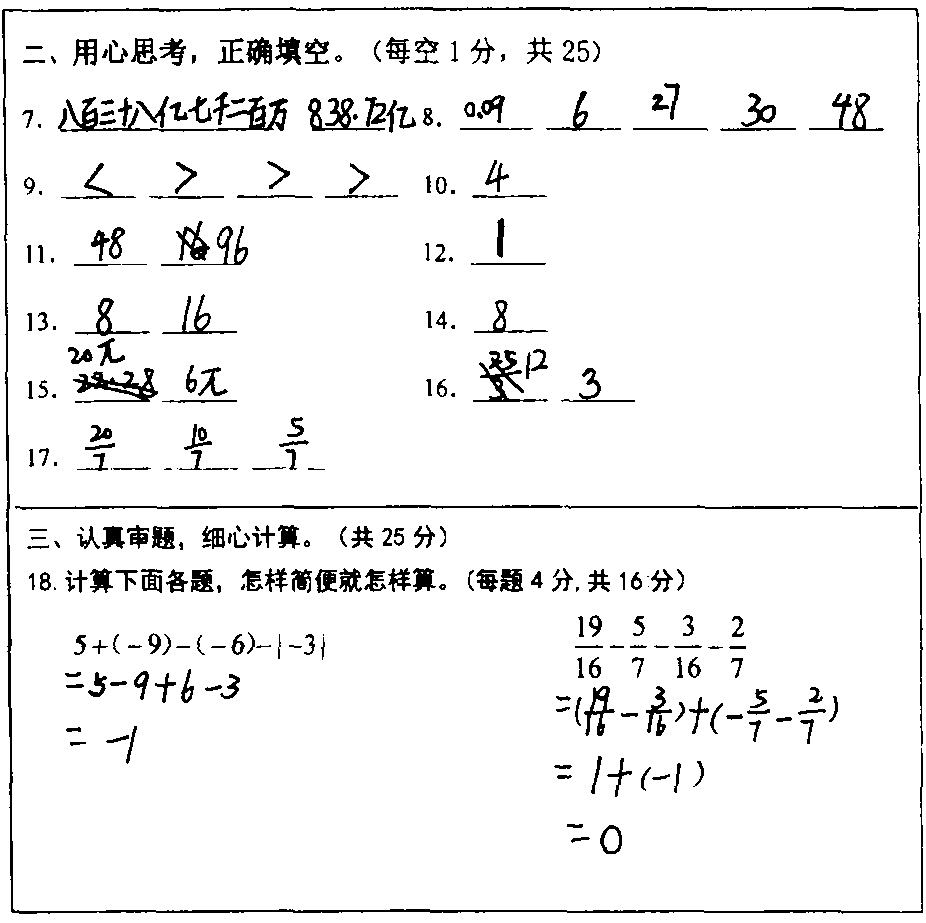 二、用心思考，正确填空。（每空 1 分，共 25）
7. 八百三十八亿七千二百万 838.72亿 8. 0.09 6 27 30 48
9. < > > > 10. 4
11. 48 96 12. 1
13. 8 16 14. 8
15. 20元 6元 16. 12 3
17. 20/7 10/7 5/7
三、认真审题，细心计算。（共 25 分）
18. 计算下面各题，怎样简便就怎样算。（每题 4 分, 共 16 分）
5+(-9)-(-6)-|-3| 19/16-5/7-3/16-2/7
=5-9+6-3 =(19/16-3/16)+(-5/7-2/7)
=-1 =1+(-1)
=0